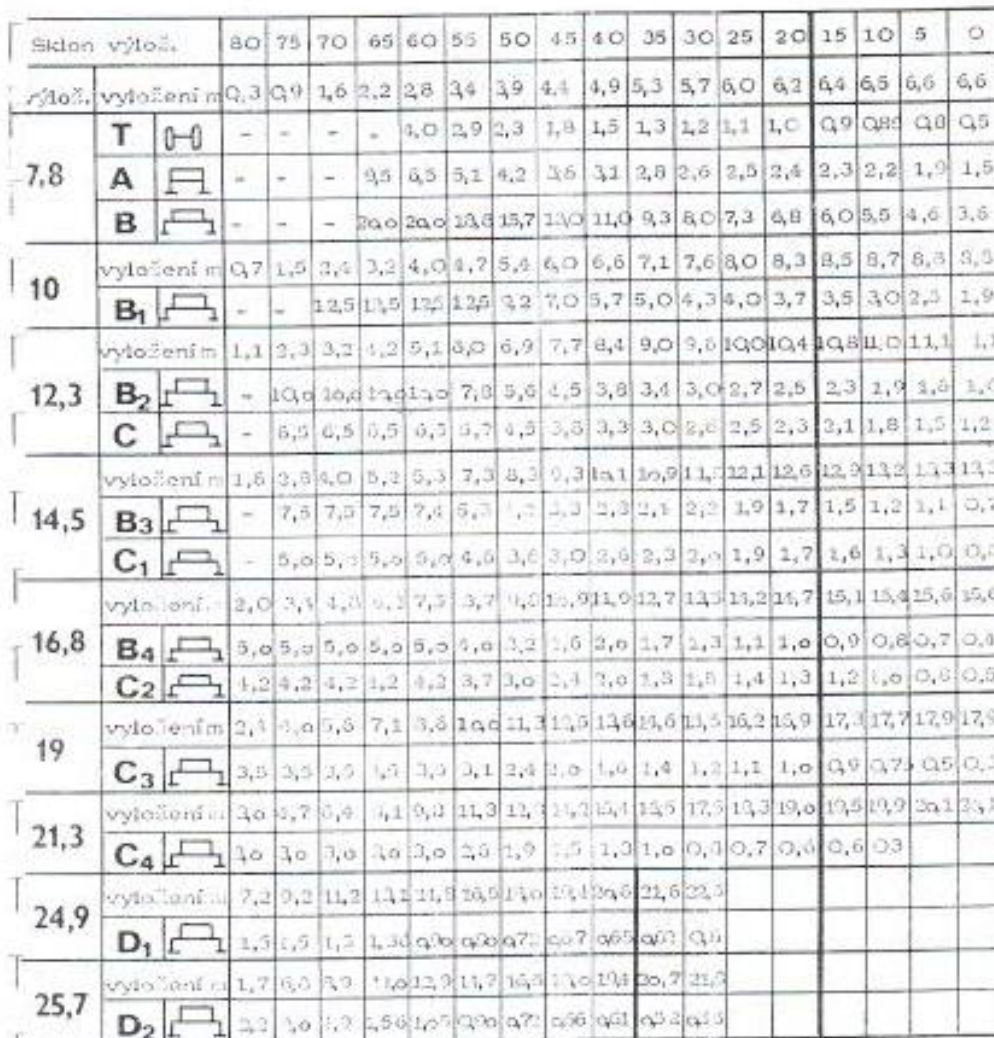 Sklon výlož. 80 75 70 65 60 55 50 45 40 35 30 25 20 15 10 5 0
výlož. vyložení m 0,3 0,9 1,6 2,2 2,8 3,4 3,9 4,4 4,9 5,3 5,7 6,0 6,2 6,4 6,5 6,6 6,6
7,8
T - - - - 4,0 2,9 2,3 1,8 1,5 1,3 1,2 1,1 1,0 0,9 0,85 0,8 0,5
A - - - 9,5 6,5 5,1 4,2 3,6 3,1 2,8 2,6 2,5 2,4 2,3 2,2 1,9 1,5
B - - - 20,0 20,0 18,8 15,7 13,0 11,0 9,3 8,0 7,3 6,8 6,0 5,5 4,6 3,6
10
vyložení m 0,7 1,5 2,4 3,2 4,0 4,7 5,4 6,0 6,6 7,1 7,6 8,0 8,3 8,5 8,7 8,8
B1 - - 12,5 12,5 12,5 12,5 9,2 7,0 5,7 5,0 4,3 4,0 3,7 3,5 3,0 2,5 1,9
12,3
vyložení m 1,1 2,3 3,2 4,2 5,1 6,0 6,9 7,7 8,4 9,0 9,6 10,0 10,4 10,8 11,0 11,1
B2 - 10,0 10,0 7,8 5,6 4,5 3,8 3,4 3,0 2,7 2,5 2,3 1,9 1,6
C - 6,5 6,5 6,5 6,5 5,7 4,5 3,8 3,3 3,0 2,6 2,5 2,3 2,1 1,8 1,5 1,2
14,5
vyložení m 1,6 2,8 4,0 5,2 6,3 7,3 8,3 9,3 10,1 10,9 12,1 12,6 12,9 13,2 13,3 13,3
B3 - 7,5 7,5 7,5 7,4 1,9 1,7 1,5 1,2 1,1 0,7
C1 - 5,0 5,0 5,0 5,0 4,6 3,6 3,0 2,6 2,3 2,0 1,9 1,7 1,6 1,3 1,0
16,8
2,0 7,5 8,7 10,9 11,9 12,7 13,5 14,2 14,7 15,1 15,4 15,6 15,6
B4 5,0 5,0 5,0 5,0 5,0 4,0 3,2 2,6 2,0 1,7 1,3 1,1 1,0 0,9 0,8 0,7 0,4
C2 4,2 4,2 4,2 4,2 4,2 3,7 3,0 2,4 2,0 1,8 1,5 1,4 1,3 1,2 1,0
19
vyložení m 5,6 7,1 8,6 10,0 11,3 12,5 13,6 14,6 15,5 16,2 16,9 17,3 17,7 17,9 17,9
C3 3,5 3,5 3,5 3,1 2,4 2,0 1,6 1,4 1,2 1,1 1,0 0,9 0,75 0,5
21,3
3,0 4,7 6,4 11,3 17,5 18,3 19,0 19,5 19,9 20,1
C4 3,0 3,0 3,0 3,0 3,0 1,9 1,5 1,3 1,0 0,7 0,6 0,6 0,3
24,9
7,2 9,2 11,2 13,1 20,6 21,6
D1 1,5 1,5 1,5 0,67 0,65
25,7
vyložení m 12,9 20,7
D2